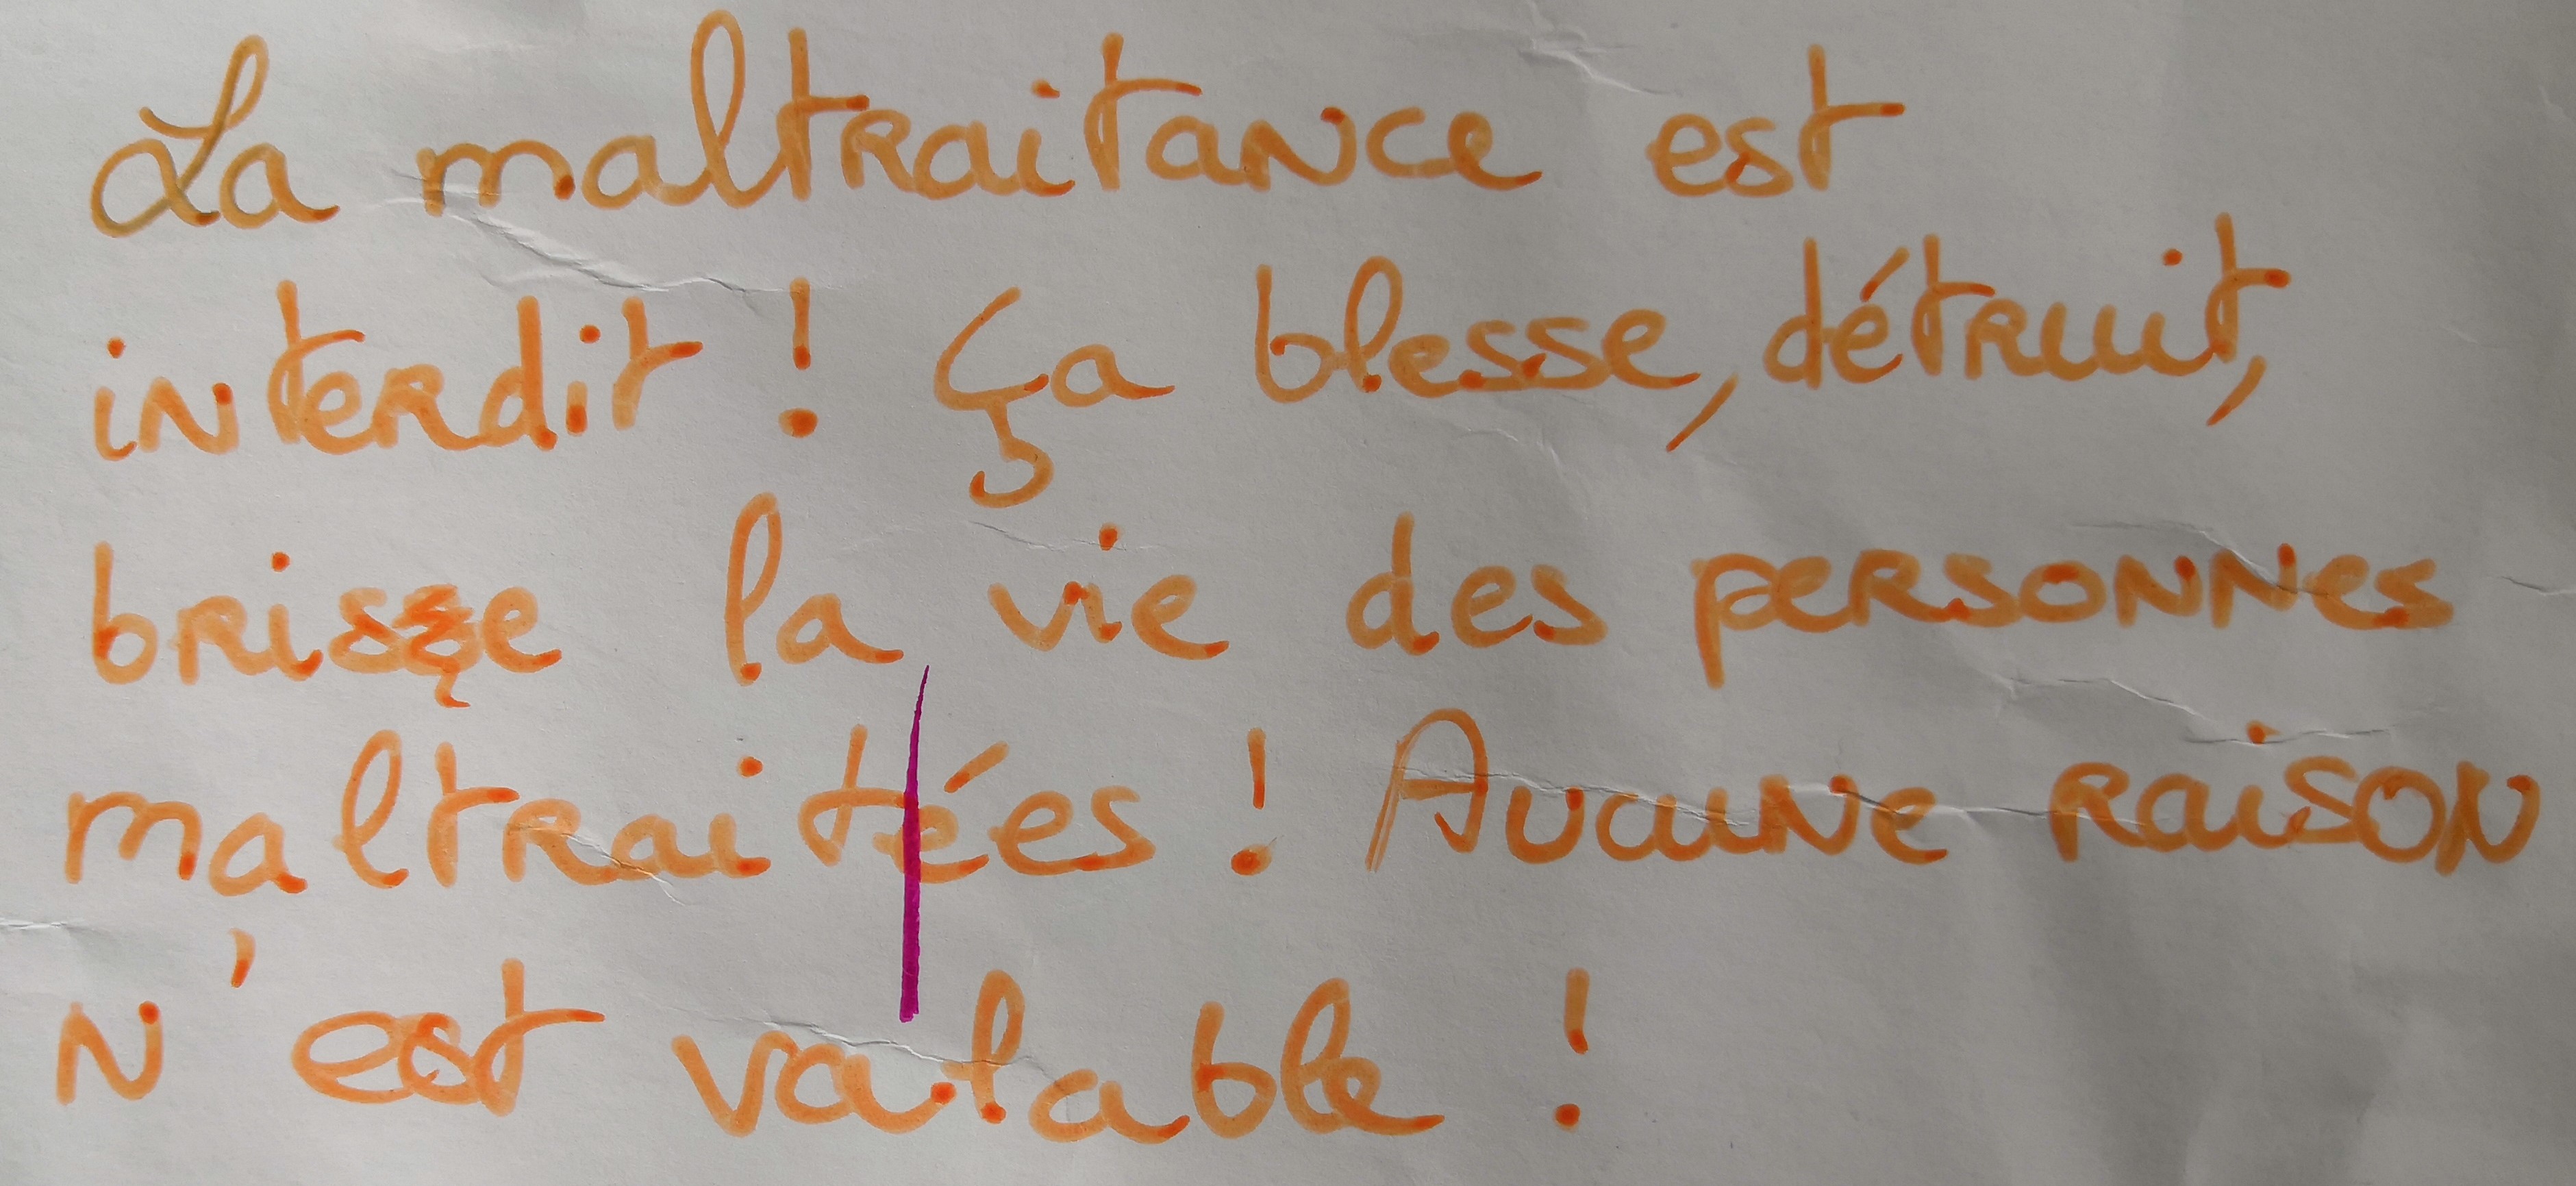 La maltraitance est
interdit ! Ça blesse, détruit,
brise la vie des personnes
maltraitées ! Aucune raison
n'est valable !